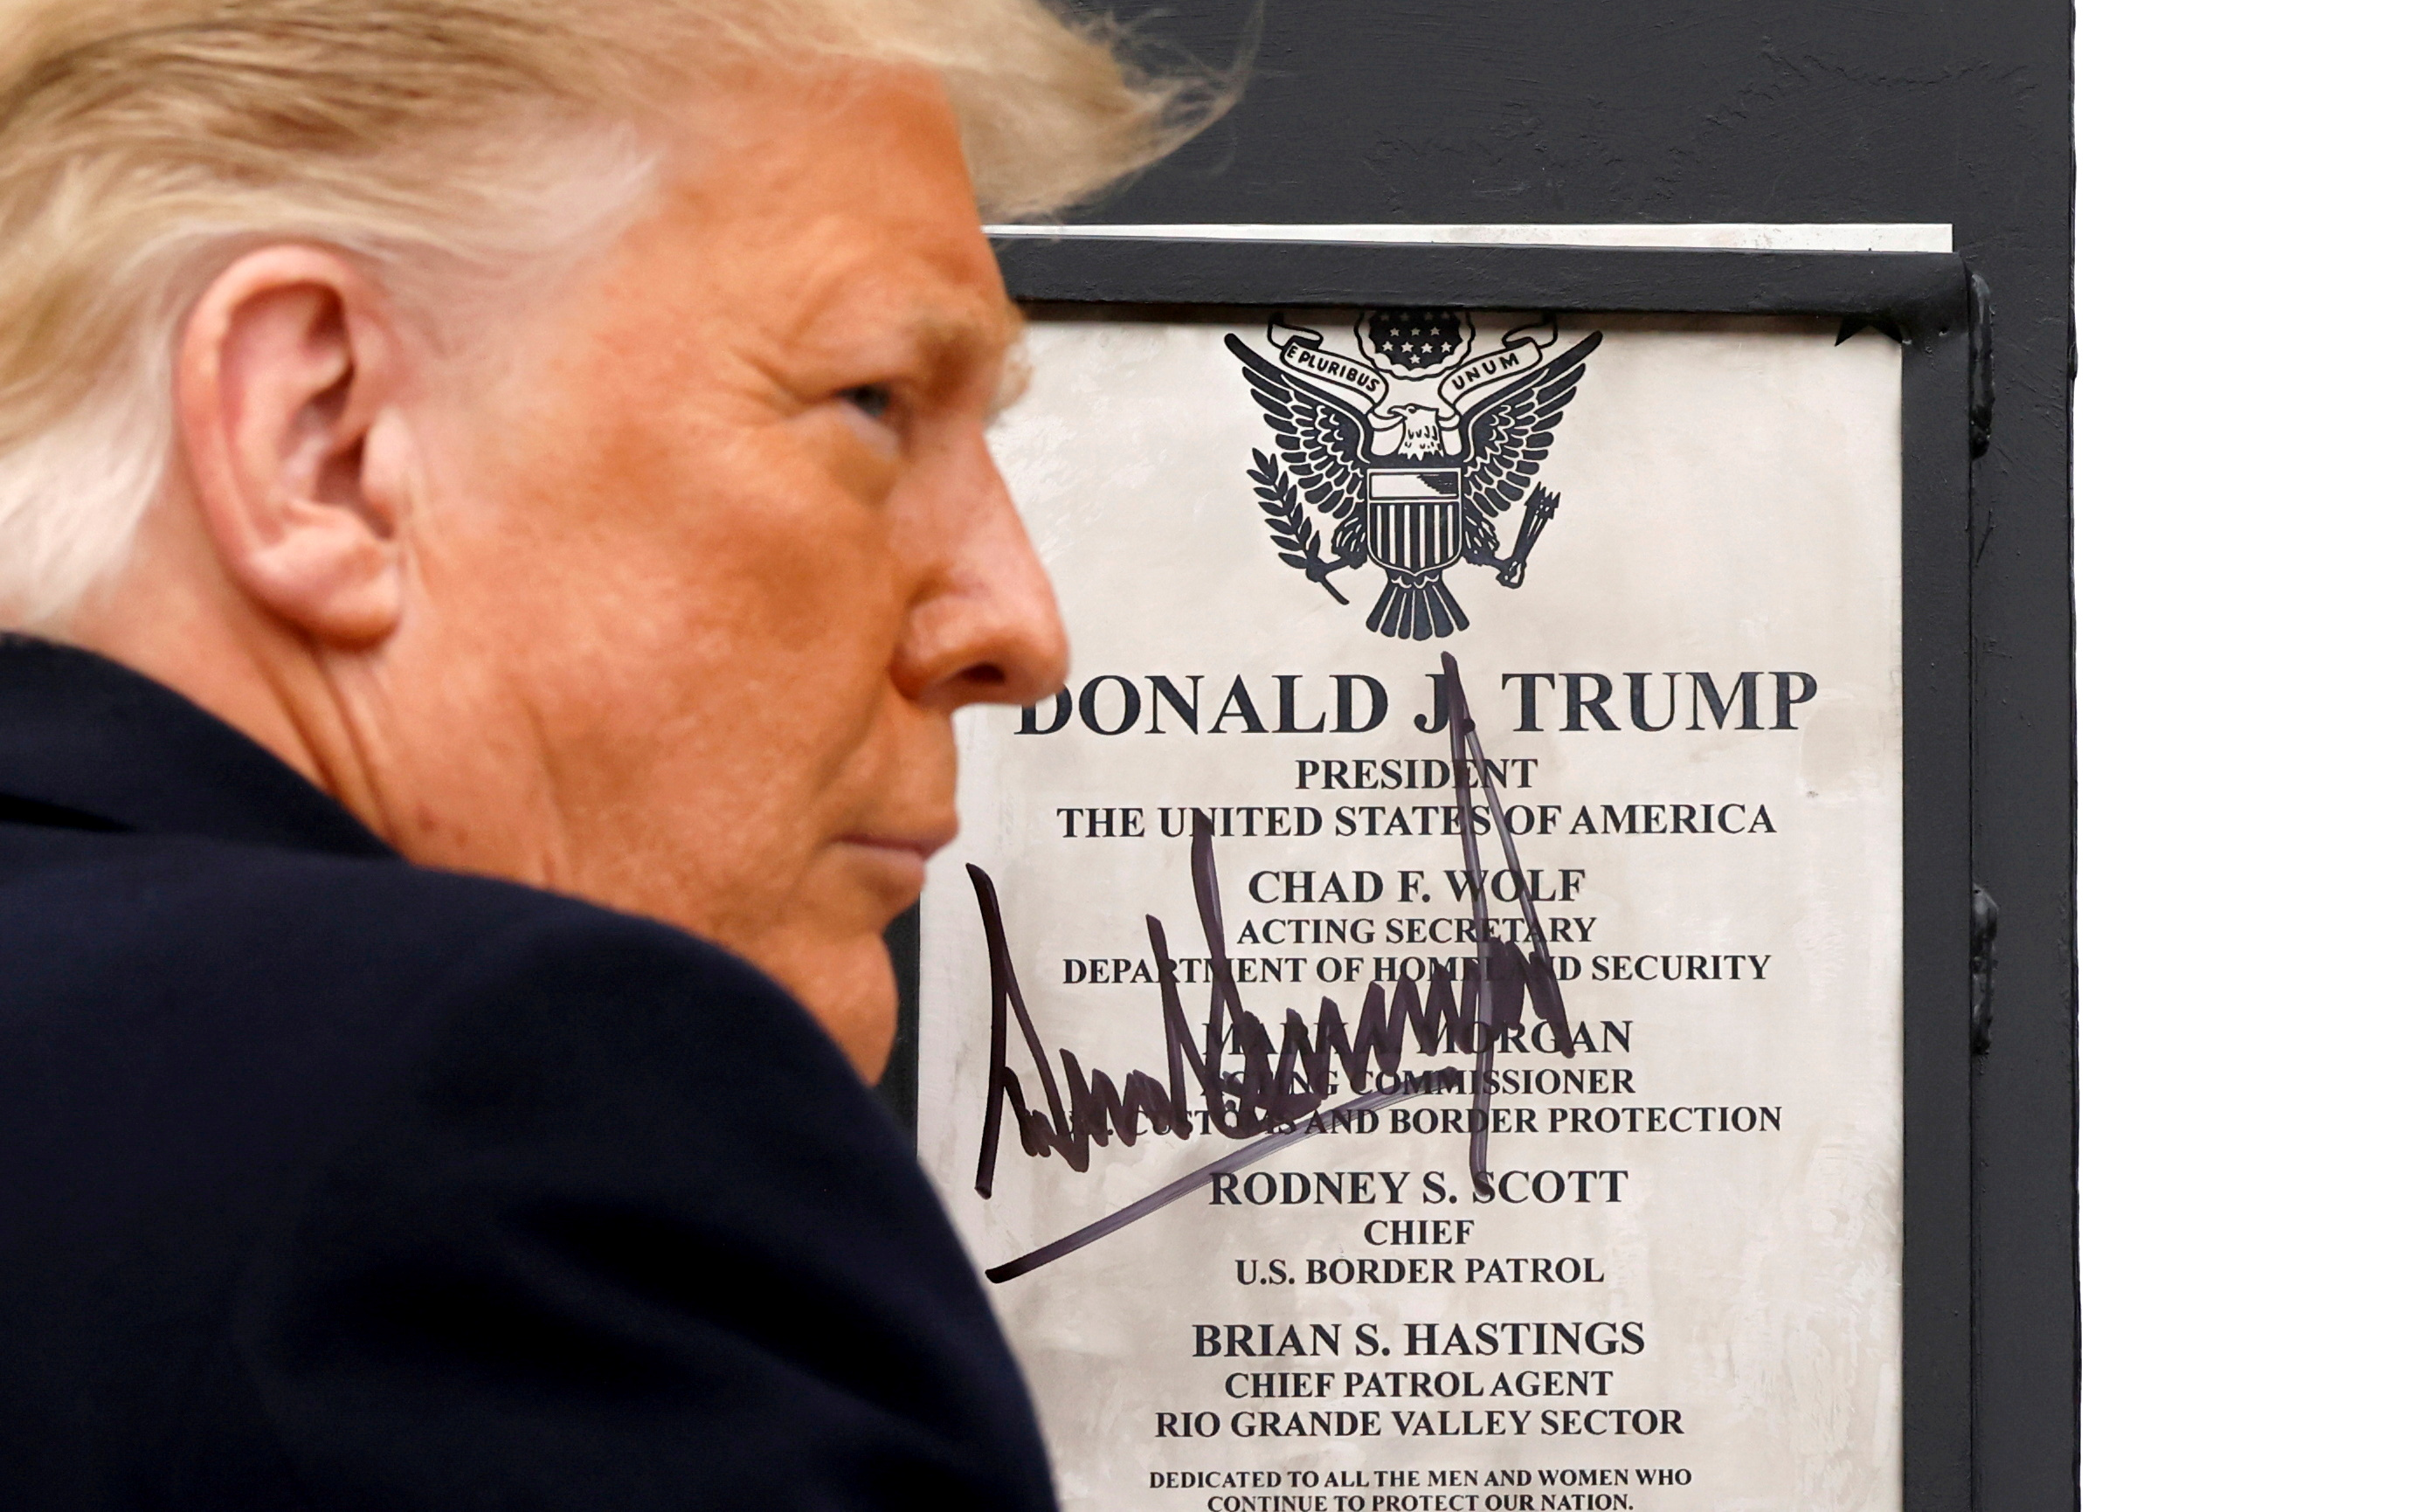 E PLURIBUS UNUM
DONALD J. TRUMP
PRESIDENT
THE UNITED STATES OF AMERICA
CHAD F. WOLF
ACTING SECRETARY
DEPARTMENT OF HOMELAND SECURITY
MARK A. MORGAN
ACTING COMMISSIONER
U.S. CUSTOMS AND BORDER PROTECTION
RODNEY S. SCOTT
CHIEF
U.S. BORDER PATROL
BRIAN S. HASTINGS
CHIEF PATROL AGENT
RIO GRANDE VALLEY SECTOR
DEDICATED TO ALL THE MEN AND WOMEN WHO
CONTINUE TO PROTECT OUR NATION.